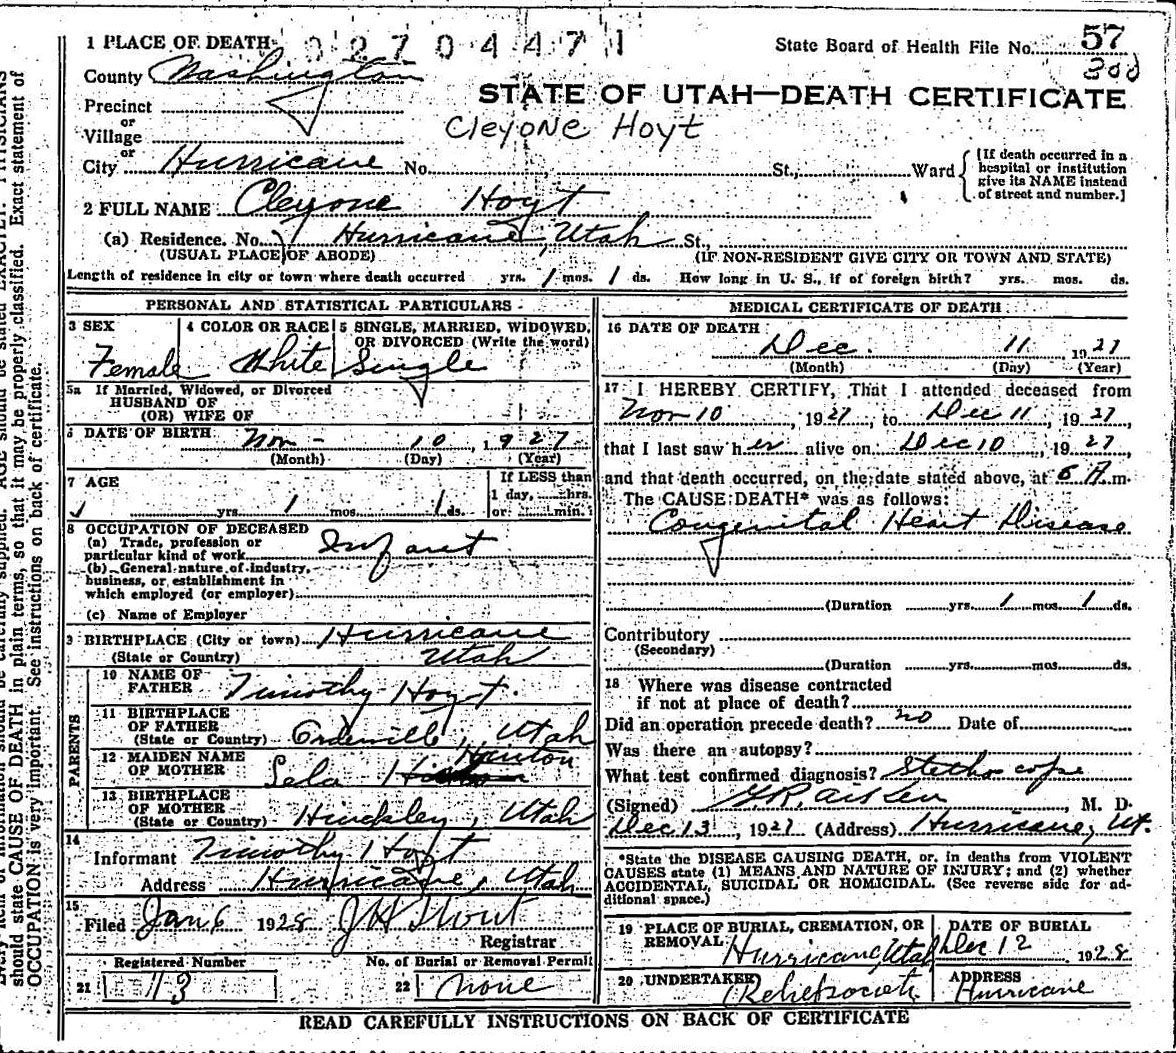 1 PLACE OF DEATH 0 2 7 0 4 4 7 1 State Board of Health File No. 57
300
County Washington
STATE OF UTAH—DEATH CERTIFICATE
Precinct
or
Village
Cleyone Hoyt
or
City Hurricane No. St., Ward
[If death occurred in a
hospital or institution
give its NAME instead
of street and number.]
2 FULL NAME Cleyone Hoyt
(a) Residence. No. Hurricane, Utah St.,
(USUAL PLACE OF ABODE) (IF NON-RESIDENT GIVE CITY OR TOWN AND STATE)
Length of residence in city or town where death occurred yrs. 1 mos. 1 ds. How long in U. S., if of foreign birth? yrs. mos. ds.
PERSONAL AND STATISTICAL PARTICULARS
3 SEX 4 COLOR OR RACE 5 SINGLE, MARRIED, WIDOWED,
OR DIVORCED (Write the word)
Female White Single
5a If Married, Widowed, or Divorced
HUSBAND OF
(OR) WIFE OF
6 DATE OF BIRTH Nov - 10, 1927
(Month) (Day) (Year)
7 AGE If LESS than
1 day, hrs.
yrs 1 mos. 1 ds. or min.
8 OCCUPATION OF DECEASED
(a) Trade, profession or
particular kind of work Infant
(b) General nature of industry,
business, or establishment in
which employed (or employer)
(c) Name of Employer
9 BIRTHPLACE (City or town) Hurricane
(State or Country) Utah
PARENTS
10 NAME OF
FATHER Timothy Hoyt.
11 BIRTHPLACE
OF FATHER
(State or Country) Orderville, Utah
12 MAIDEN NAME Hinton
OF MOTHER Lela
13 BIRTHPLACE
OF MOTHER
(State or Country) Hinckley, Utah
14
Informant Timothy Hoyt
Address Hurricane, Utah
15
Filed Jan 6 1928 J H Stout
Registrar
Registered Number No. of Burial or Removal Permit
21 13 22 none
MEDICAL CERTIFICATE OF DEATH
16 DATE OF DEATH
Dec. 11 1927
(Month) (Day) (Year)
17 I HEREBY CERTIFY, That I attended deceased from
Nov 10, 1927, to Dec 11, 1927
that I last saw her alive on Dec 10, 1927
and that death occurred, on the date stated above, at 6 A m.
The CAUSE DEATH* was as follows:
Congenital Heart Disease
(Duration yrs. 1 mos 1 ds.
Contributory
(Secondary)
(Duration yrs. mos. ds.
18 Where was disease contracted
if not at place of death?
Did an operation precede death? no Date of
Was there an autopsy?
What test confirmed diagnosis? Stethoscope
(Signed) Aiken, M. D.
Dec 13, 1927 (Address) Hurricane, Ut.
*State the DISEASE CAUSING DEATH, or, in deaths from VIOLENT
CAUSES state (1) MEANS AND NATURE OF INJURY; and (2) whether
ACCIDENTAL, SUICIDAL OR HOMICIDAL. (See reverse side for ad-
ditional space.)
19 PLACE OF BURIAL, CREMATION, OR DATE OF BURIAL
REMOVAL Hurricane, Utah Dec 12 1928
20 UNDERTAKER Relief society ADDRESS Hurricane
READ CAREFULLY INSTRUCTIONS ON BACK OF CERTIFICATE
should state CAUSE OF DEATH in plain terms, so that it may be properly classified. Exact statement of
OCCUPATION is very important. See instructions on back of certificate.